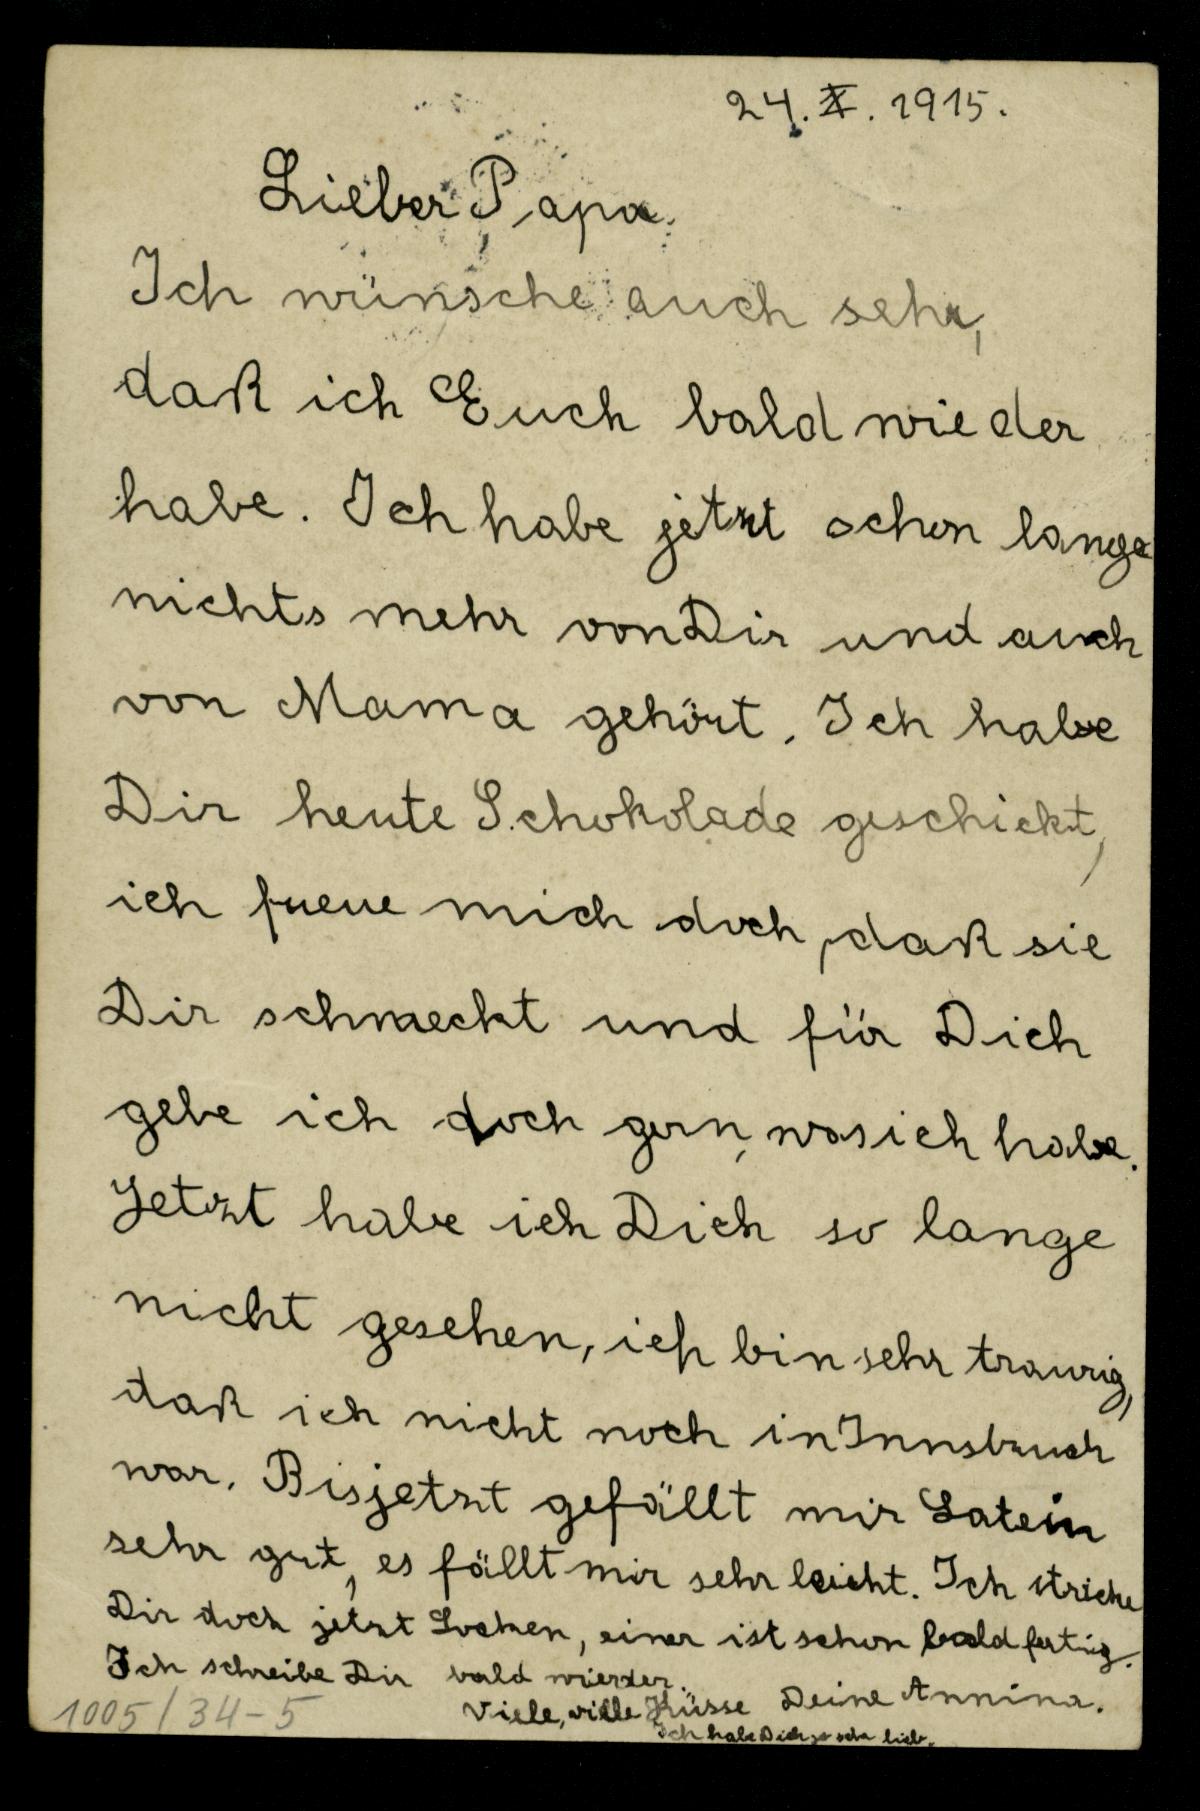 24. X. 1915.
Lieber Papa.
Ich wünsche auch sehr,
daß ich Euch bald wieder
habe. Ich habe jetzt schon lange
nichts mehr von Dir und auch
von Mama gehört. Ich habe
Dir heute Schokolade geschickt,
ich freue mich doch, daß sie
Dir schmeckt und für Dich
gebe ich doch gern, was ich habe.
Jetzt habe ich Dich so lange
nicht gesehen, ich bin sehr traurig,
daß ich nicht noch in Innsbruch
war. Bis jetzt gefällt mir Latein
sehr gut, es fällt mir sehr leicht. Ich stricke
Dir doch jetzt Socken, einer ist schon bald fertig.
Ich schreibe Dir bald wierder.
Viele, viele Küsse Deine Annina.
Ich habe Dich so sehr lieb.
1005/34-5